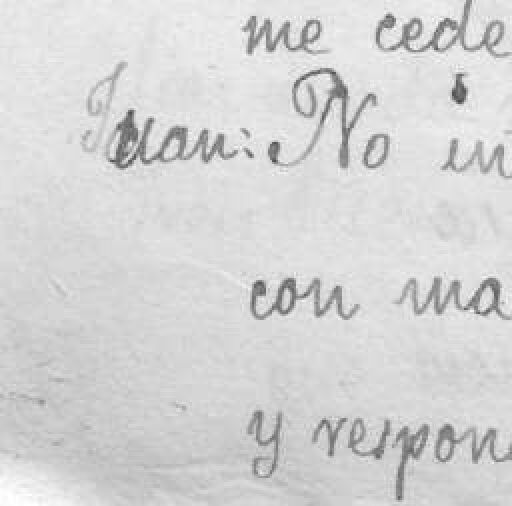 me cede
Juan: No in
con ma
y respon